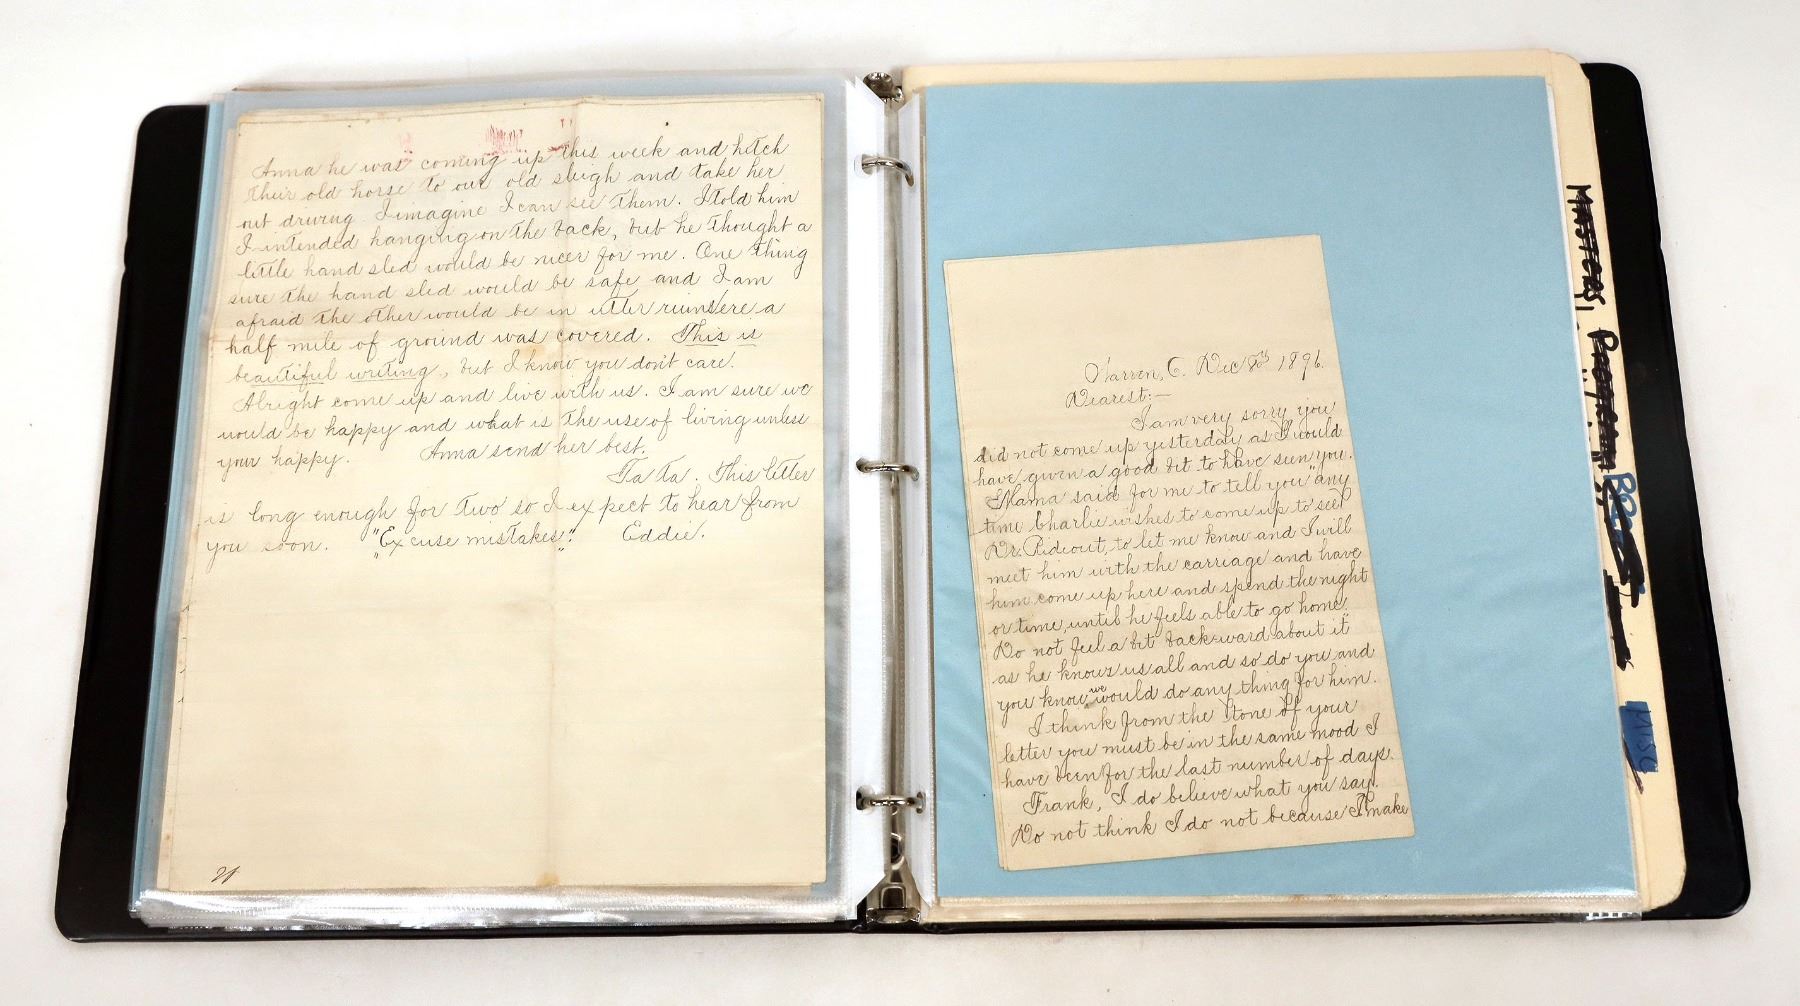 Anna he was coming up this week and hitch
their old horse to our old sleigh and take her
out driving. I imagine I can see them. I told him
I intended hanging on the back, but he thought a
little hand sled would be nicer for me. One thing
sure the hand sled would be safe and I am
afraid the other would be in utter ruins ere a
half mile of ground was covered. This is
beautiful writing, but I know you don't care.
Alright come up and live with us. I am sure we
would be happy and what is the use of living unless
your happy. Anna send her best.
Ta Ta. This letter
is long enough for two so I expect to hear from
you soon. "Excuse mistakes." Eddie.
Warren, O. Dec 8th 1896.
Dearest:—
I am very sorry you
did not come up yesterday as I would
have given a good bit to have seen you.
Mama said for me to tell you "any
time Charlie wishes to come up to see
Dr. Rideout, to let me know and I will
meet him with the carriage and have
him come up here and spend the night
or time, until he feels able to go home."
Do not feel a bit backward about it
as he knows us all and so do you and
you know we would do any thing for him.
I think from the tone of your
letter you must be in the same mood I
have been for the last number of days.
Frank, I do believe what you say.
Do not think I do not because I make
MASTERS
Program
MISC